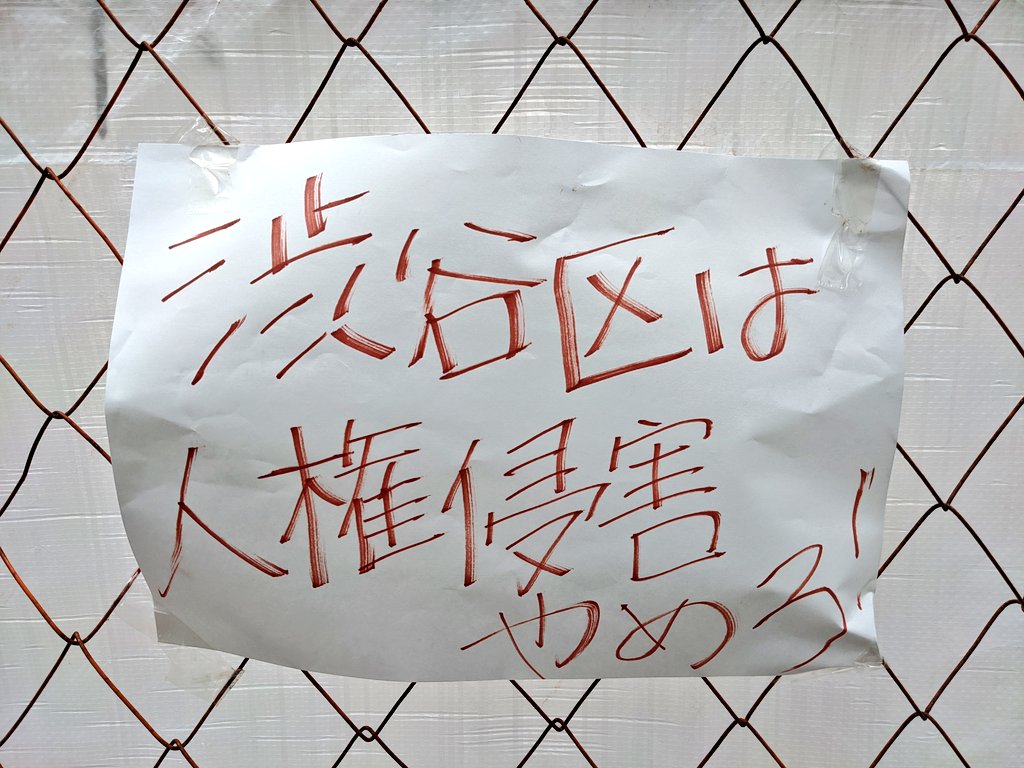 渋谷区は
人権侵害
やめろ!